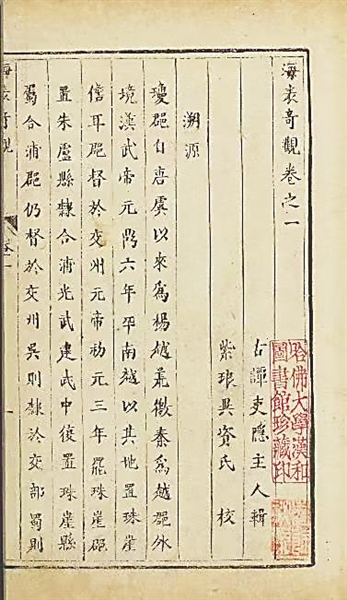 海表奇觀卷之一
古譚吏隱主人輯
紫琅異資氏 校
溯源
瓊郡自唐虞以來爲楊越荒徼秦爲越郡外
境漢武帝元鼎六年平南越以其地置珠崖
儋耳郡督於交州元帝初元三年罷珠崖郡
置朱盧縣隸合浦光武建武中復置珠崖縣
屬合浦郡仍督於交州吳則隸於交部蜀則
海表奇觀
卷一
哈佛大學漢和
圖書館珍藏印